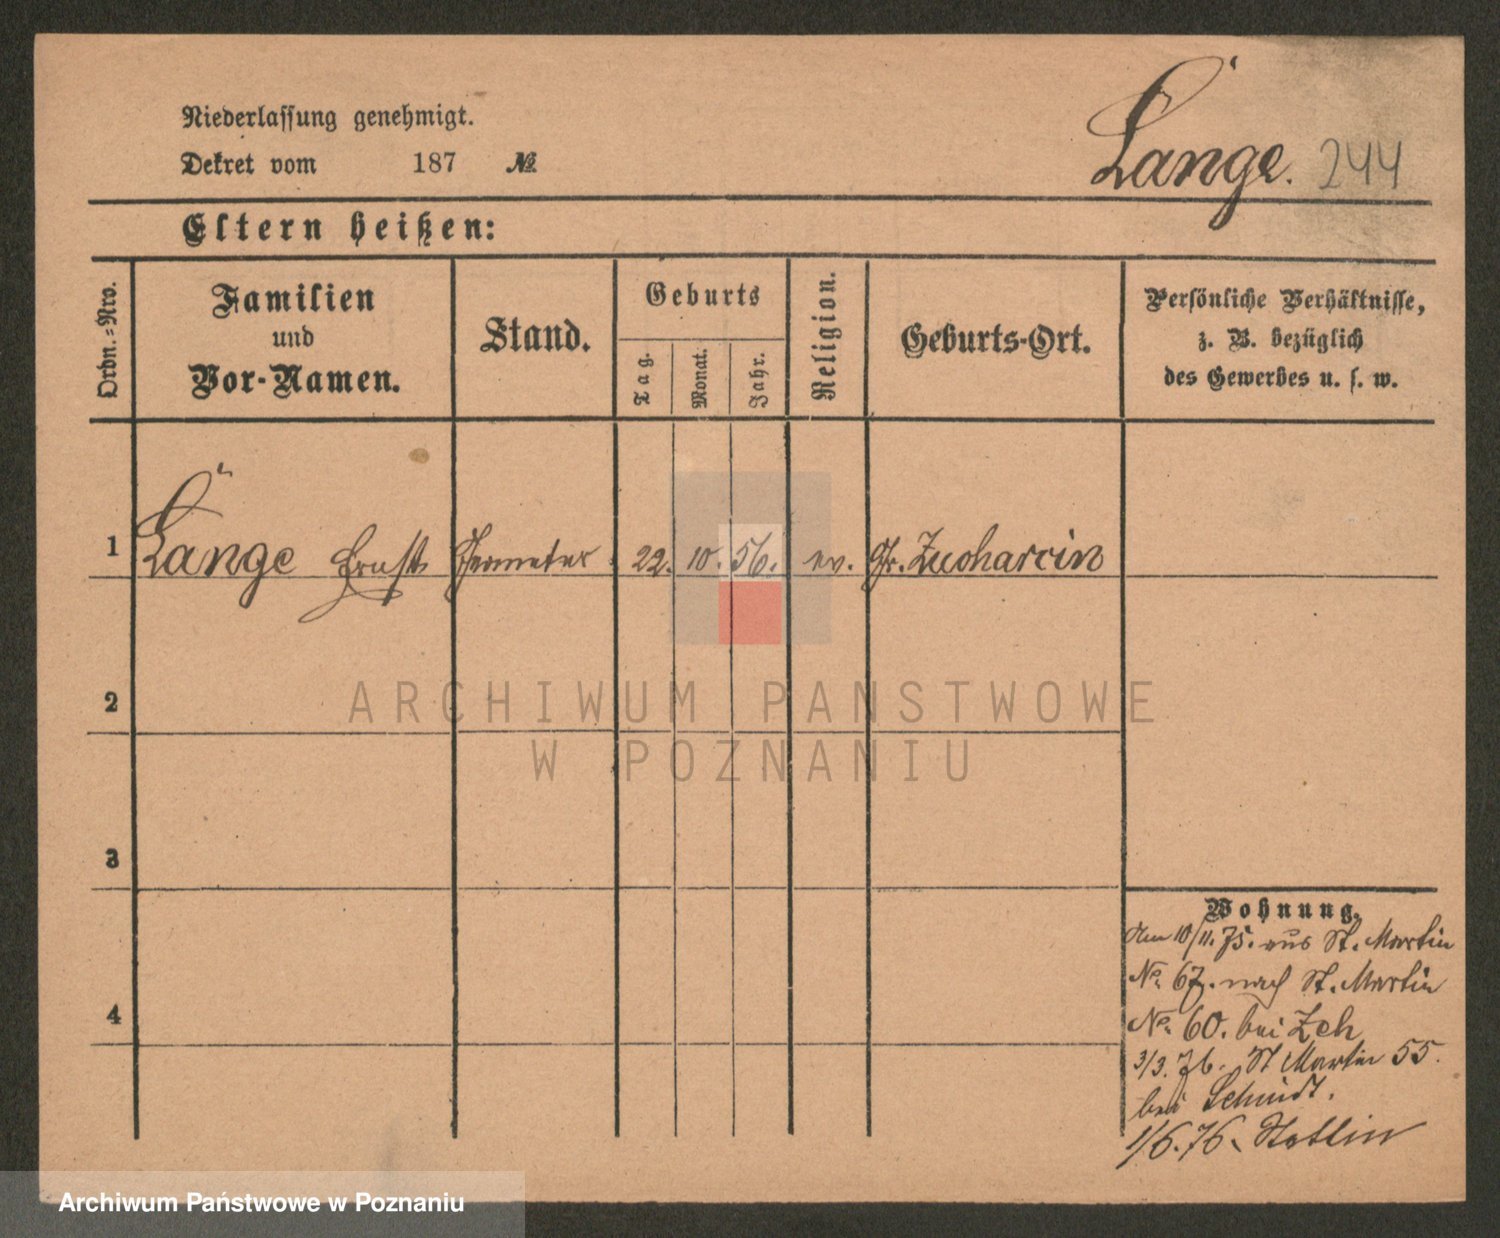 Lange. 244
Niederlassung genehmigt.
Dekret vom 187 №
Eltern heißen:
Ordn.-Nro.
Familien
und
Vor-Namen.
Stand.
Geburts
Tag.
Monat.
Jahr.
Religion.
Geburts-Ort.
Persönliche Verhältnisse,
z. B. bezüglich
des Gewerbes u. s. w.
1 Lange Ernst 22. 10. 56. ev. Gr.
2
ARCHIWUM PANSTWOWE
W POZNANIU
3
4
Wohnung.
10/11. 75. aus St. Martin
No. 67. nach St. Martin
No. 60. bei Zeh
3/3. 76. St Martin 55.
bei Schmidt.
1/6. 76. Stettin
Archiwum Państwowe w Poznaniu